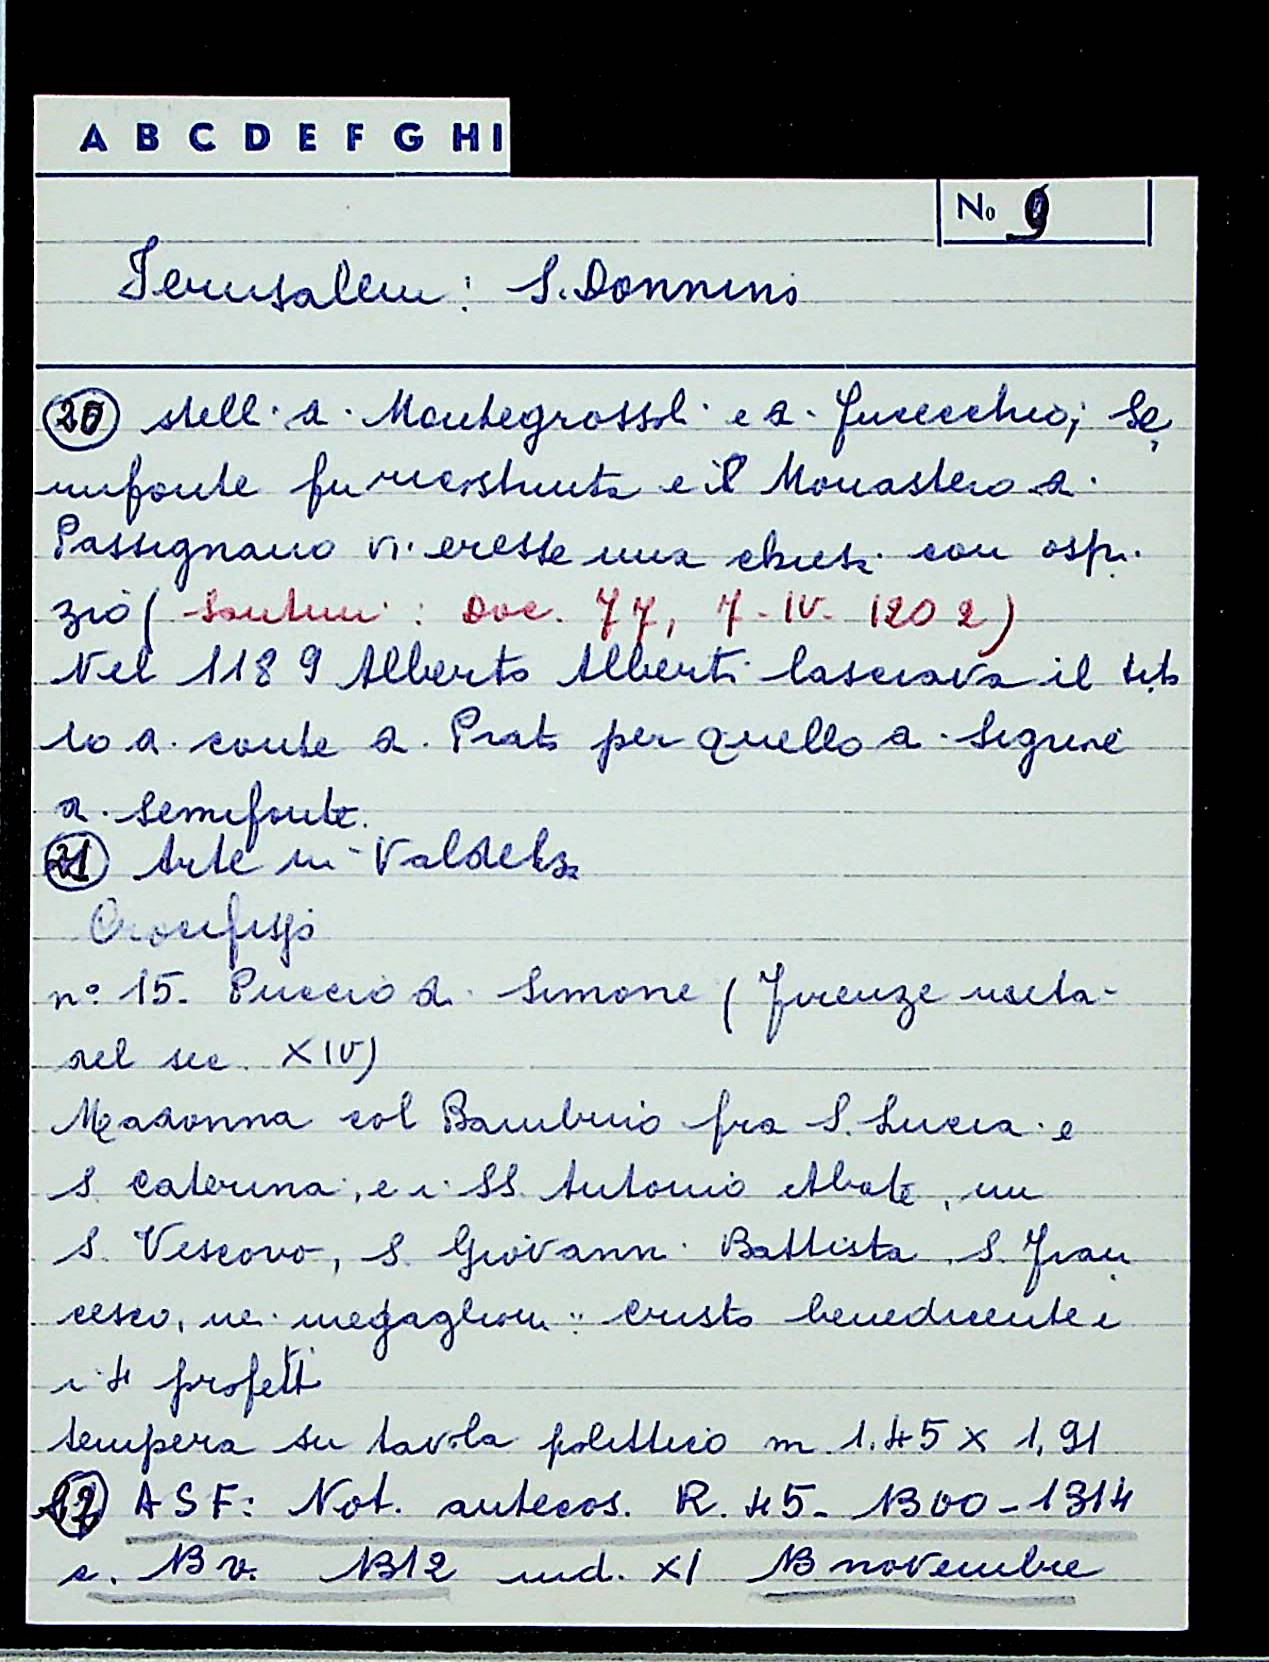 A B C D E F G H I
No 9
Jerusalem: S. Donnino
20 stelli di Montegrossoli e di Fucecchio; Se
mifonte fu ricostruita e il Monastero di
Passignano vi eresse una chiesa con ospi
zio ( Santini: Doc. 77, 7-IV. 1202)
Nel 1189 Alberto Alberti lasciava il tito
lo di conte di Prato per quello di Signore
di Semifonte.
21 Arte in Valdelsa
Crocefissi
n° 15. Puccio di Simone (Firenze metà
del sec. XIV)
Madonna col Bambino fra S. Lucia e
S. Caterina, e i SS. Antonio Abate, un
S. Vescovo, S. Giovanni Battista, S. Fran
cesco, nei medaglioni: Cristo benedicente e
i 4 profeti
tempera su tavola polittico m 1.45 x 1,91
22 ASF: Not. antecos. R. 45- 1300-1314
c. 13 v. 1312 ind. XI 13 novembre